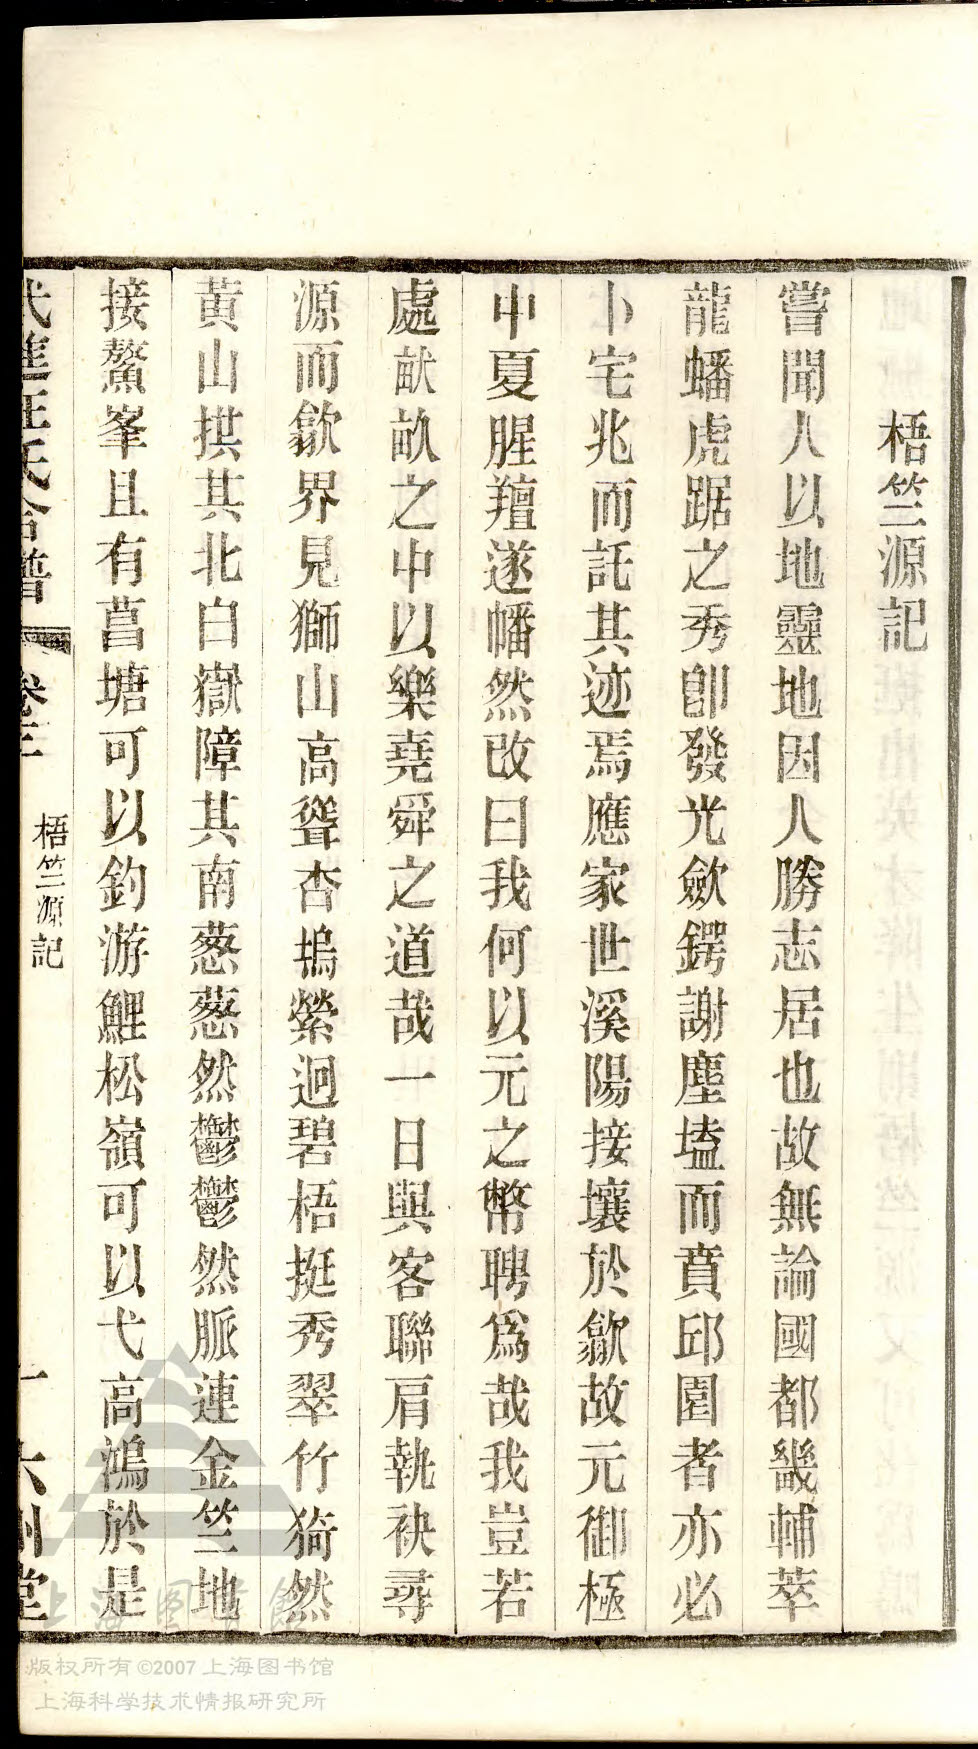 梧竺源記
嘗聞人以地靈地因人勝志居也故無論國都畿輔萃
龍蟠虎踞之秀卽發光歛鍔謝塵壒而賁邱園者亦必
卜宅兆而託其迹焉應家世溪陽接壤於歙故元御極
中夏腥羶遂幡然改曰我何以元之幣聘爲哉我豈若
處畎畝之中以樂堯舜之道哉一日與客聯肩執袂尋
源而歙界見獅山高聳杏塢縈迴碧梧挺秀翠竹猗然
黃山拱其北白嶽障其南葱葱然鬱鬱然脈連金竺地
接鰲峯且有菖塘可以釣游鯉松嶺可以弋高鴻於是
氏合譜
卷三
梧竺源記
六州堂
上海图书馆
版权所有©2007上海图书馆
上海科学技术情报研究所